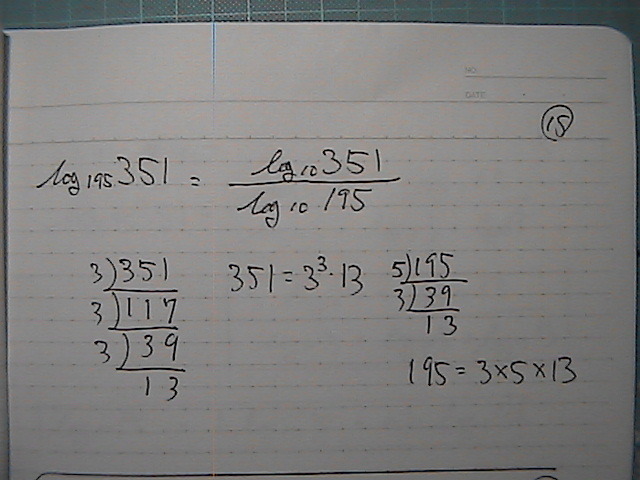 NO.
DATE
18
log₁₉₅351 = log₁₀351 / log₁₀195
3)351
3)117
3)39
13
351=3³·13
5)195
3)39
13
195=3×5×13